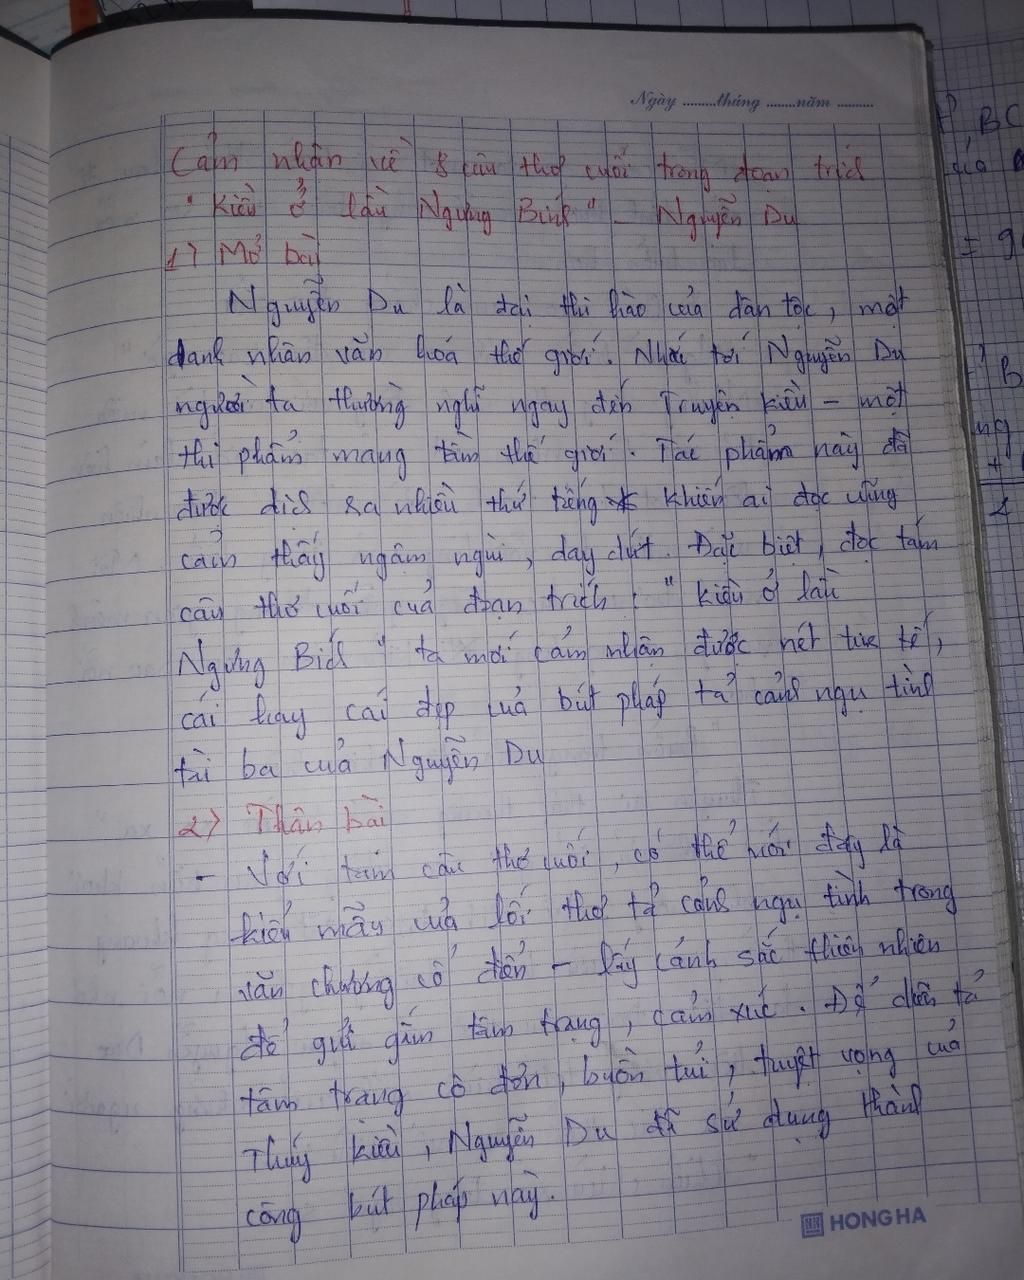 Ngày .........tháng .......năm .........
Cảm nhận về 8 câu thơ cuối trong đoạn trích
" Kiều ở lầu Ngưng Bích" - Nguyễn Du
1) Mở bài
Nguyễn Du là đại thi hào của dân tộc, một
danh nhân văn hoá thế giới. Nhắc tới Nguyễn Du
người ta thường nghĩ ngay đến Truyện Kiều - một
thi phẩm mang tầm thế giới. Tác phẩm này đã
được dịch ra nhiều thứ tiếng khiến ai đọc cũng
cảm thấy ngậm ngùi, day dứt. Đặc biệt, đọc tám
câu thơ cuối của đoạn trích : " Kiều ở lầu
Ngưng Bích " ta mới cảm nhận được nét tinh tế,
cái hay cái đẹp của bút pháp tả cảnh ngụ tình
tài ba của Nguyễn Du
2) Thân bài
- Với tám câu thơ cuối, có thể nói đây là
kiểu mẫu của lối thơ tả cảnh ngụ tình trong
văn chương cổ điển - lấy cảnh sắc thiên nhiên
để gửi gắm tâm trạng, cảm xúc. Để diễn tả
tâm trạng cô đơn, buồn tủi, tuyệt vọng của
Thúy Kiều, Nguyễn Du đã sử dụng thành
công bút pháp này.
HONG HA
BC
của
= 9
B